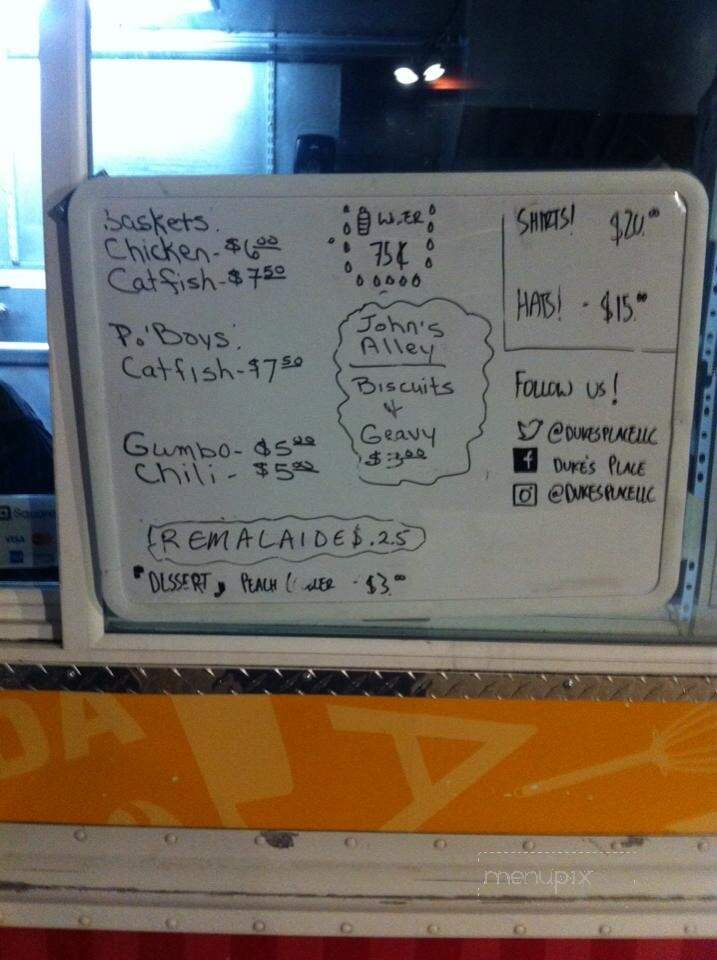 Baskets.
Chicken - $6.00
Catfish - $7.50
Po'Boys:
Catfish - $7.50
Gumbo - $5.00
Chili - $5.00
REMALAIDE $.25
"DESSERT" PEACH - $3.00
75¢
John's
Alley
Biscuits
&
Geavy
$3.00
SHIRTS! $20.00
HATS! - $15.00
FOLLOW US!
@DUKESPLACELLC
f DUKE'S PLACE
@DUKESPLACELLC
Square
VISA
DA
A
menupix